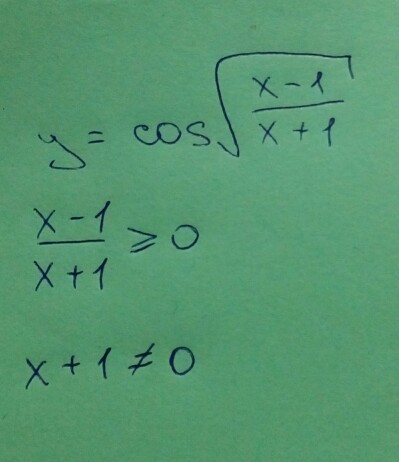 y = cos√((x-1)/(x+1))
(x-1)/(x+1) ≥ 0
x + 1 ≠ 0